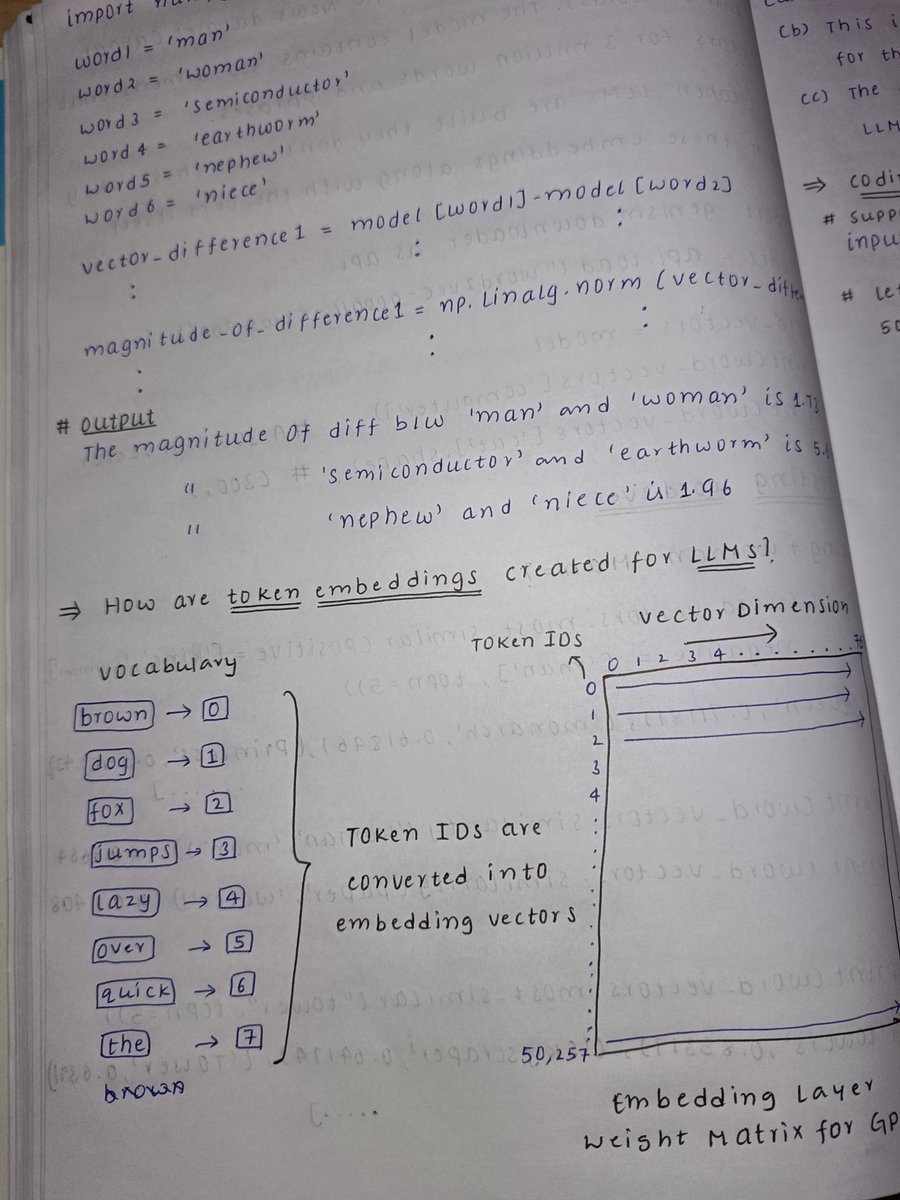 import
word1 = 'man'
word2 = 'woman'
word3 = 'semiconductor'
word4 = 'earthworm'
word5 = 'nephew'
word6 = 'niece'
vector_difference1 = model [word1]-model [word2]
:
:
:
magnitude-of-difference1 = np.linalg.norm (vector_diffe
:
:
:
# output
The magnitude of diff b/w 'man' and 'woman' is 1.73
" 'semiconductor' and 'earthworm' is 5.
" 'nephew' and 'niece' is 1.96
⇒ How are token embeddings created for LLMs?
vocabulary
brown → 0
dog → 1
fox → 2
jumps → 3
lazy → 4
over → 5
quick → 6
the → 7
brown
Token IDs are
converted into
embedding vectors
Token IDs
vector Dimension
0 1 2 3 4 . . . . . . . . .
0
1
2
3
4
50,257
Embedding Layer
Weight Matrix for GP
(b) This i
for th
(c) The
LLM
⇒ codi
# supp
inpu
# Let
50